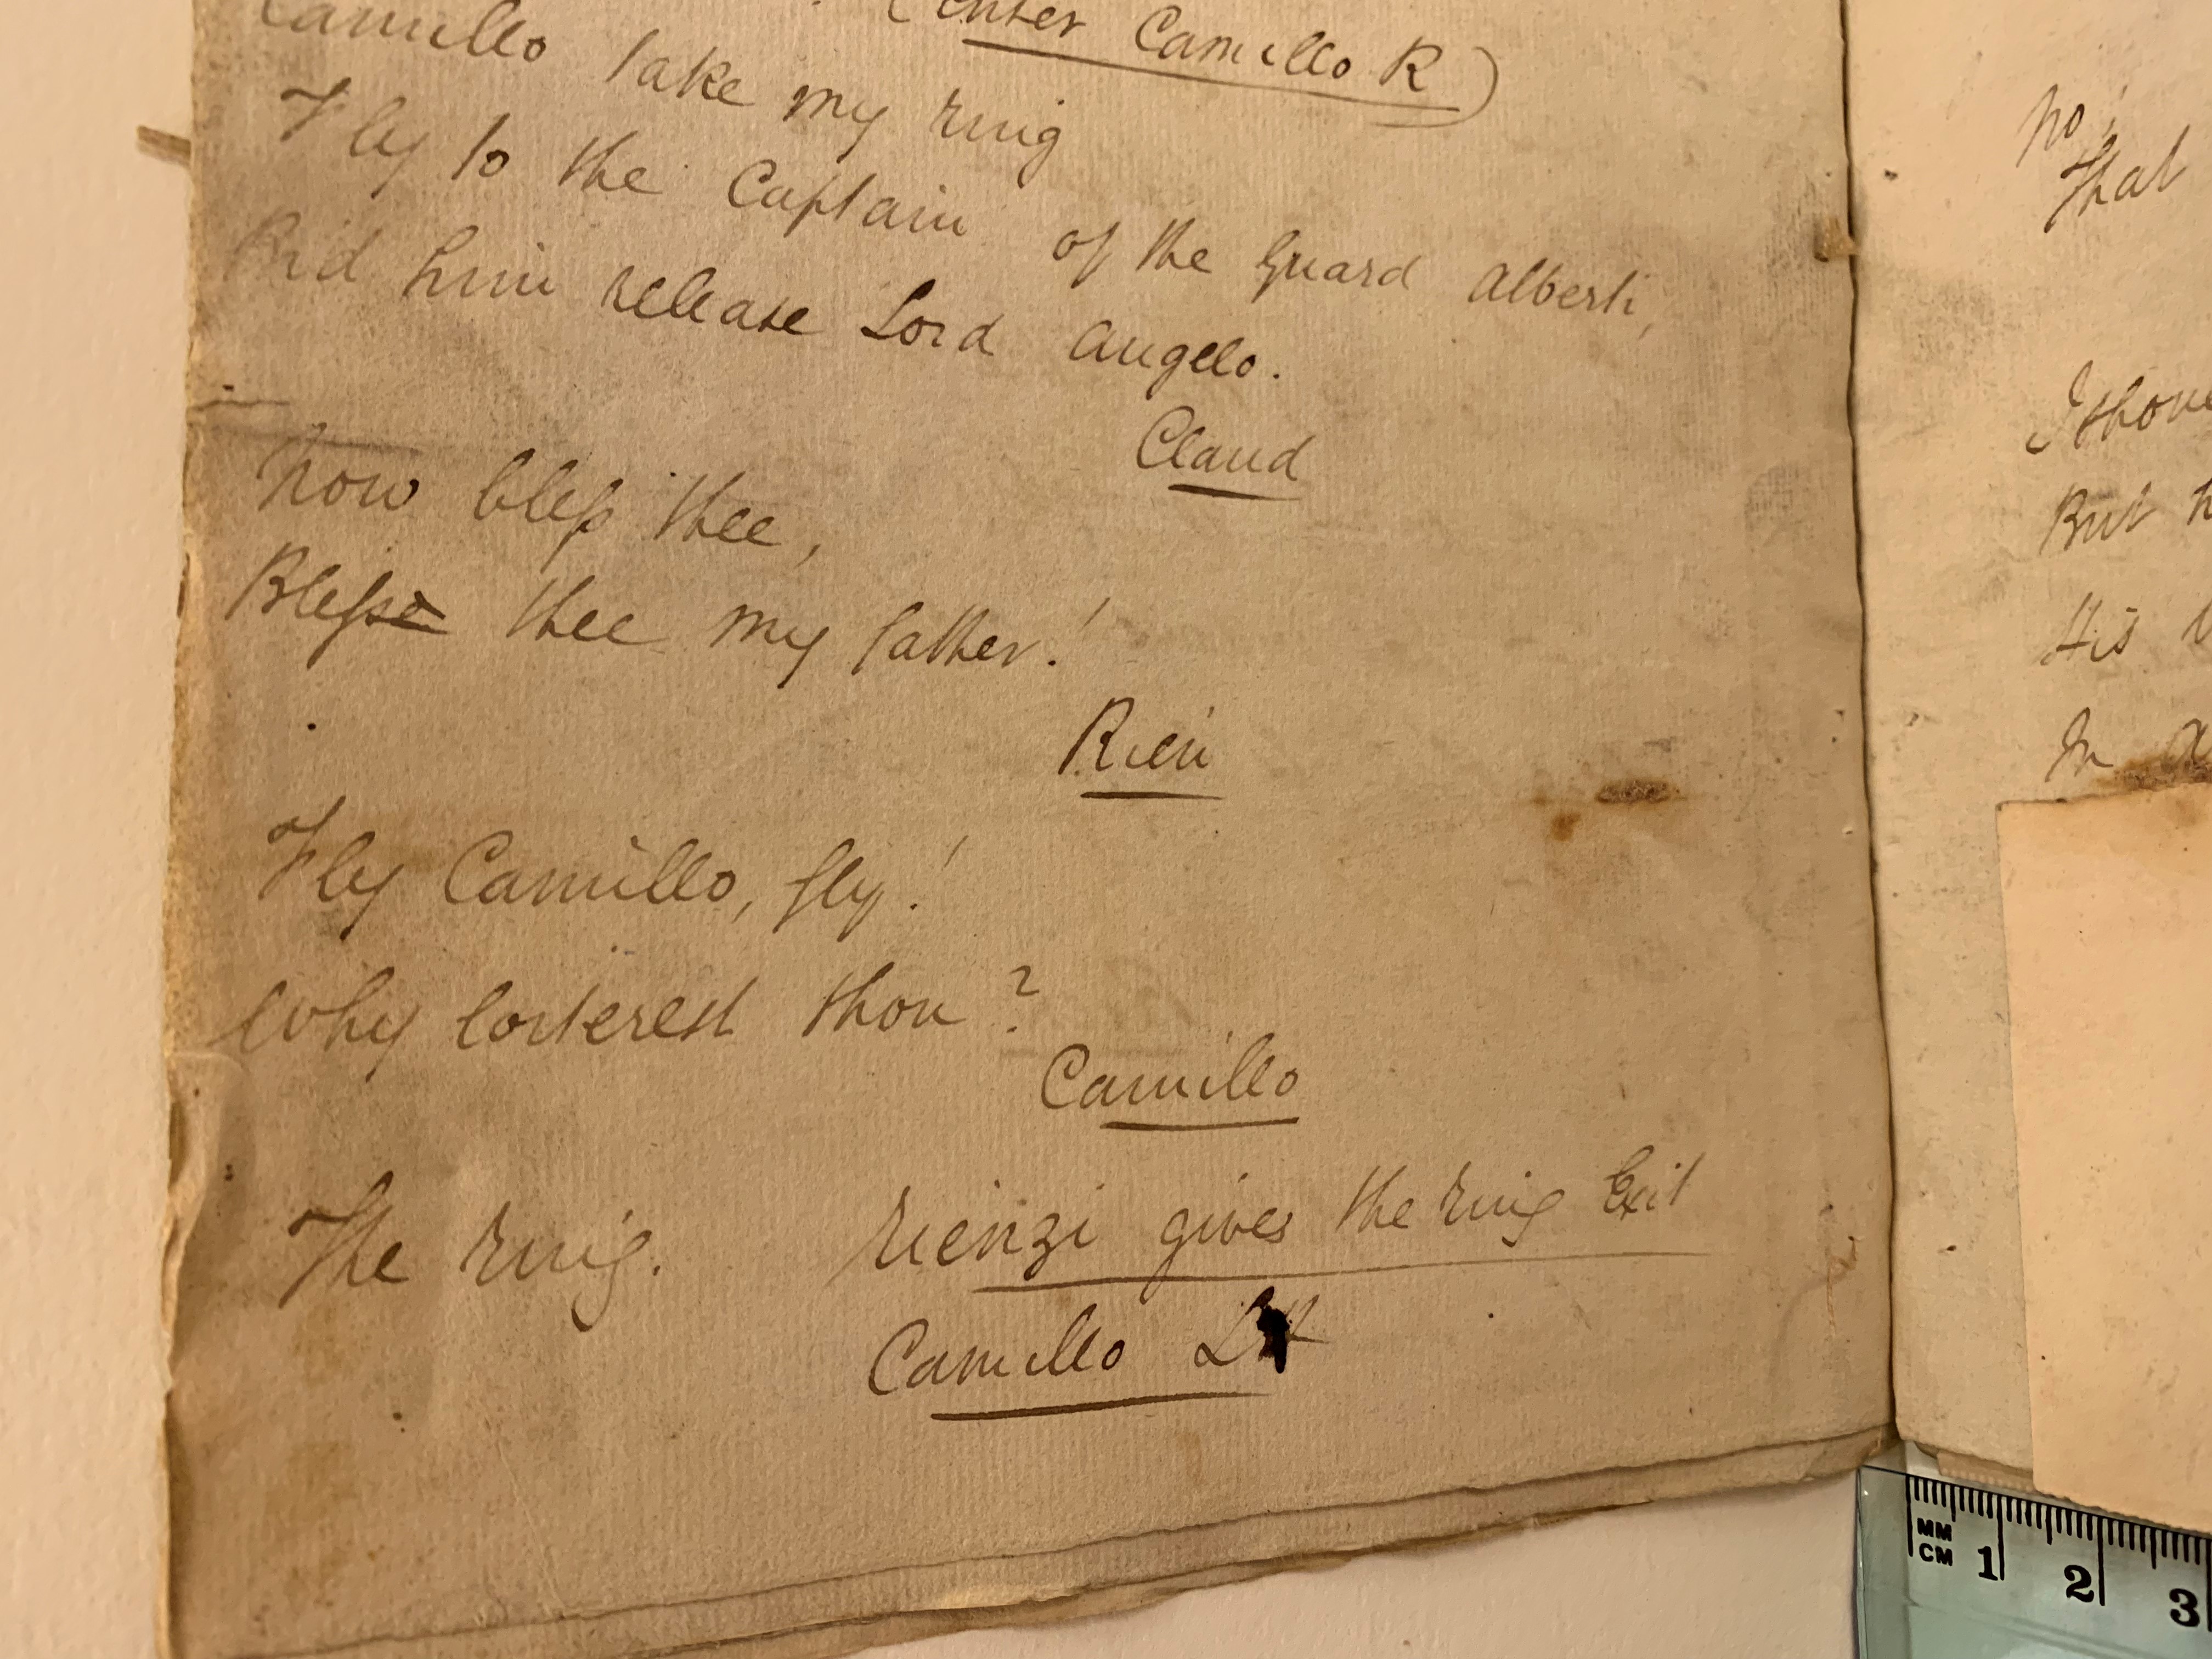 (Enter Camillo R)
Camillo take my ring
Fly to the Captain of the Guard Alberti,
Bid him release Lord Angelo.
Claud
Now bless thee,
Blesse thee my father!
Rien
Fly Camillo, fly!
Why loiterest thou?
Camillo
The ring. Rienzi gives the ring Exit
Camillo
No;
That
I
But
His
In
MM
CM 1 2 3